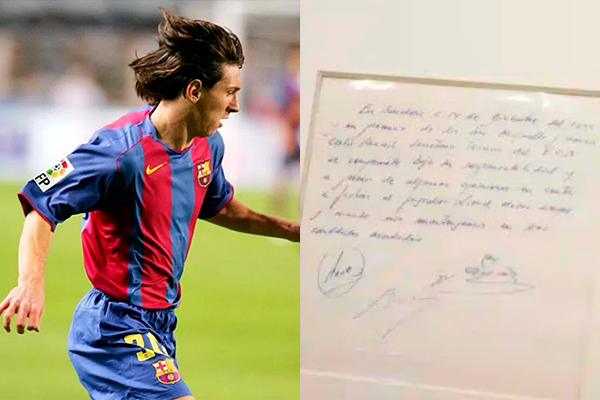 FP
30
En Barcelona a 14 de Diciembre del
en presencia de los Minguella y
Carles Rexach Secretario Técnico del F.C.B
se compromete bajo su responsabilidad y
a pesar de algunas opiniones en contra
a fichar al jugador Lionel Messi siempre
y cuando nos mantengamos en las
cantidades acordadas